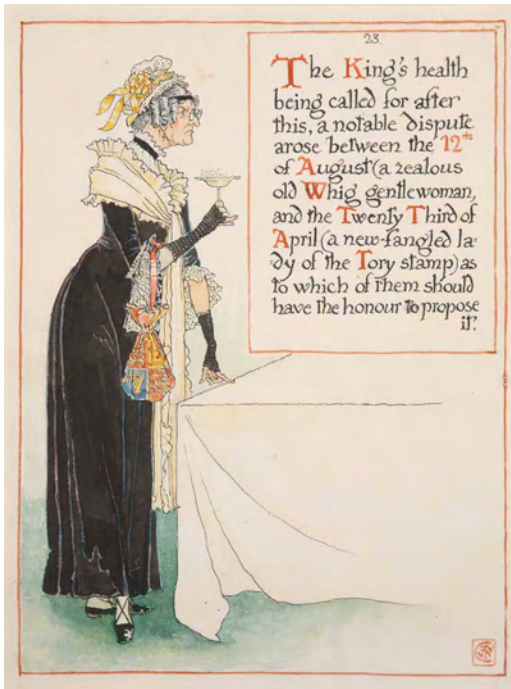 23.
The King's health
being called for after
this, a notable dispute
arose between the 12th
of August (a zealous
old Whig gentlewoman,
and the Twenty Third of
April (a new-fangled la-
dy of the Tory stamp) as
to which of them should
have the honour to propose
it?